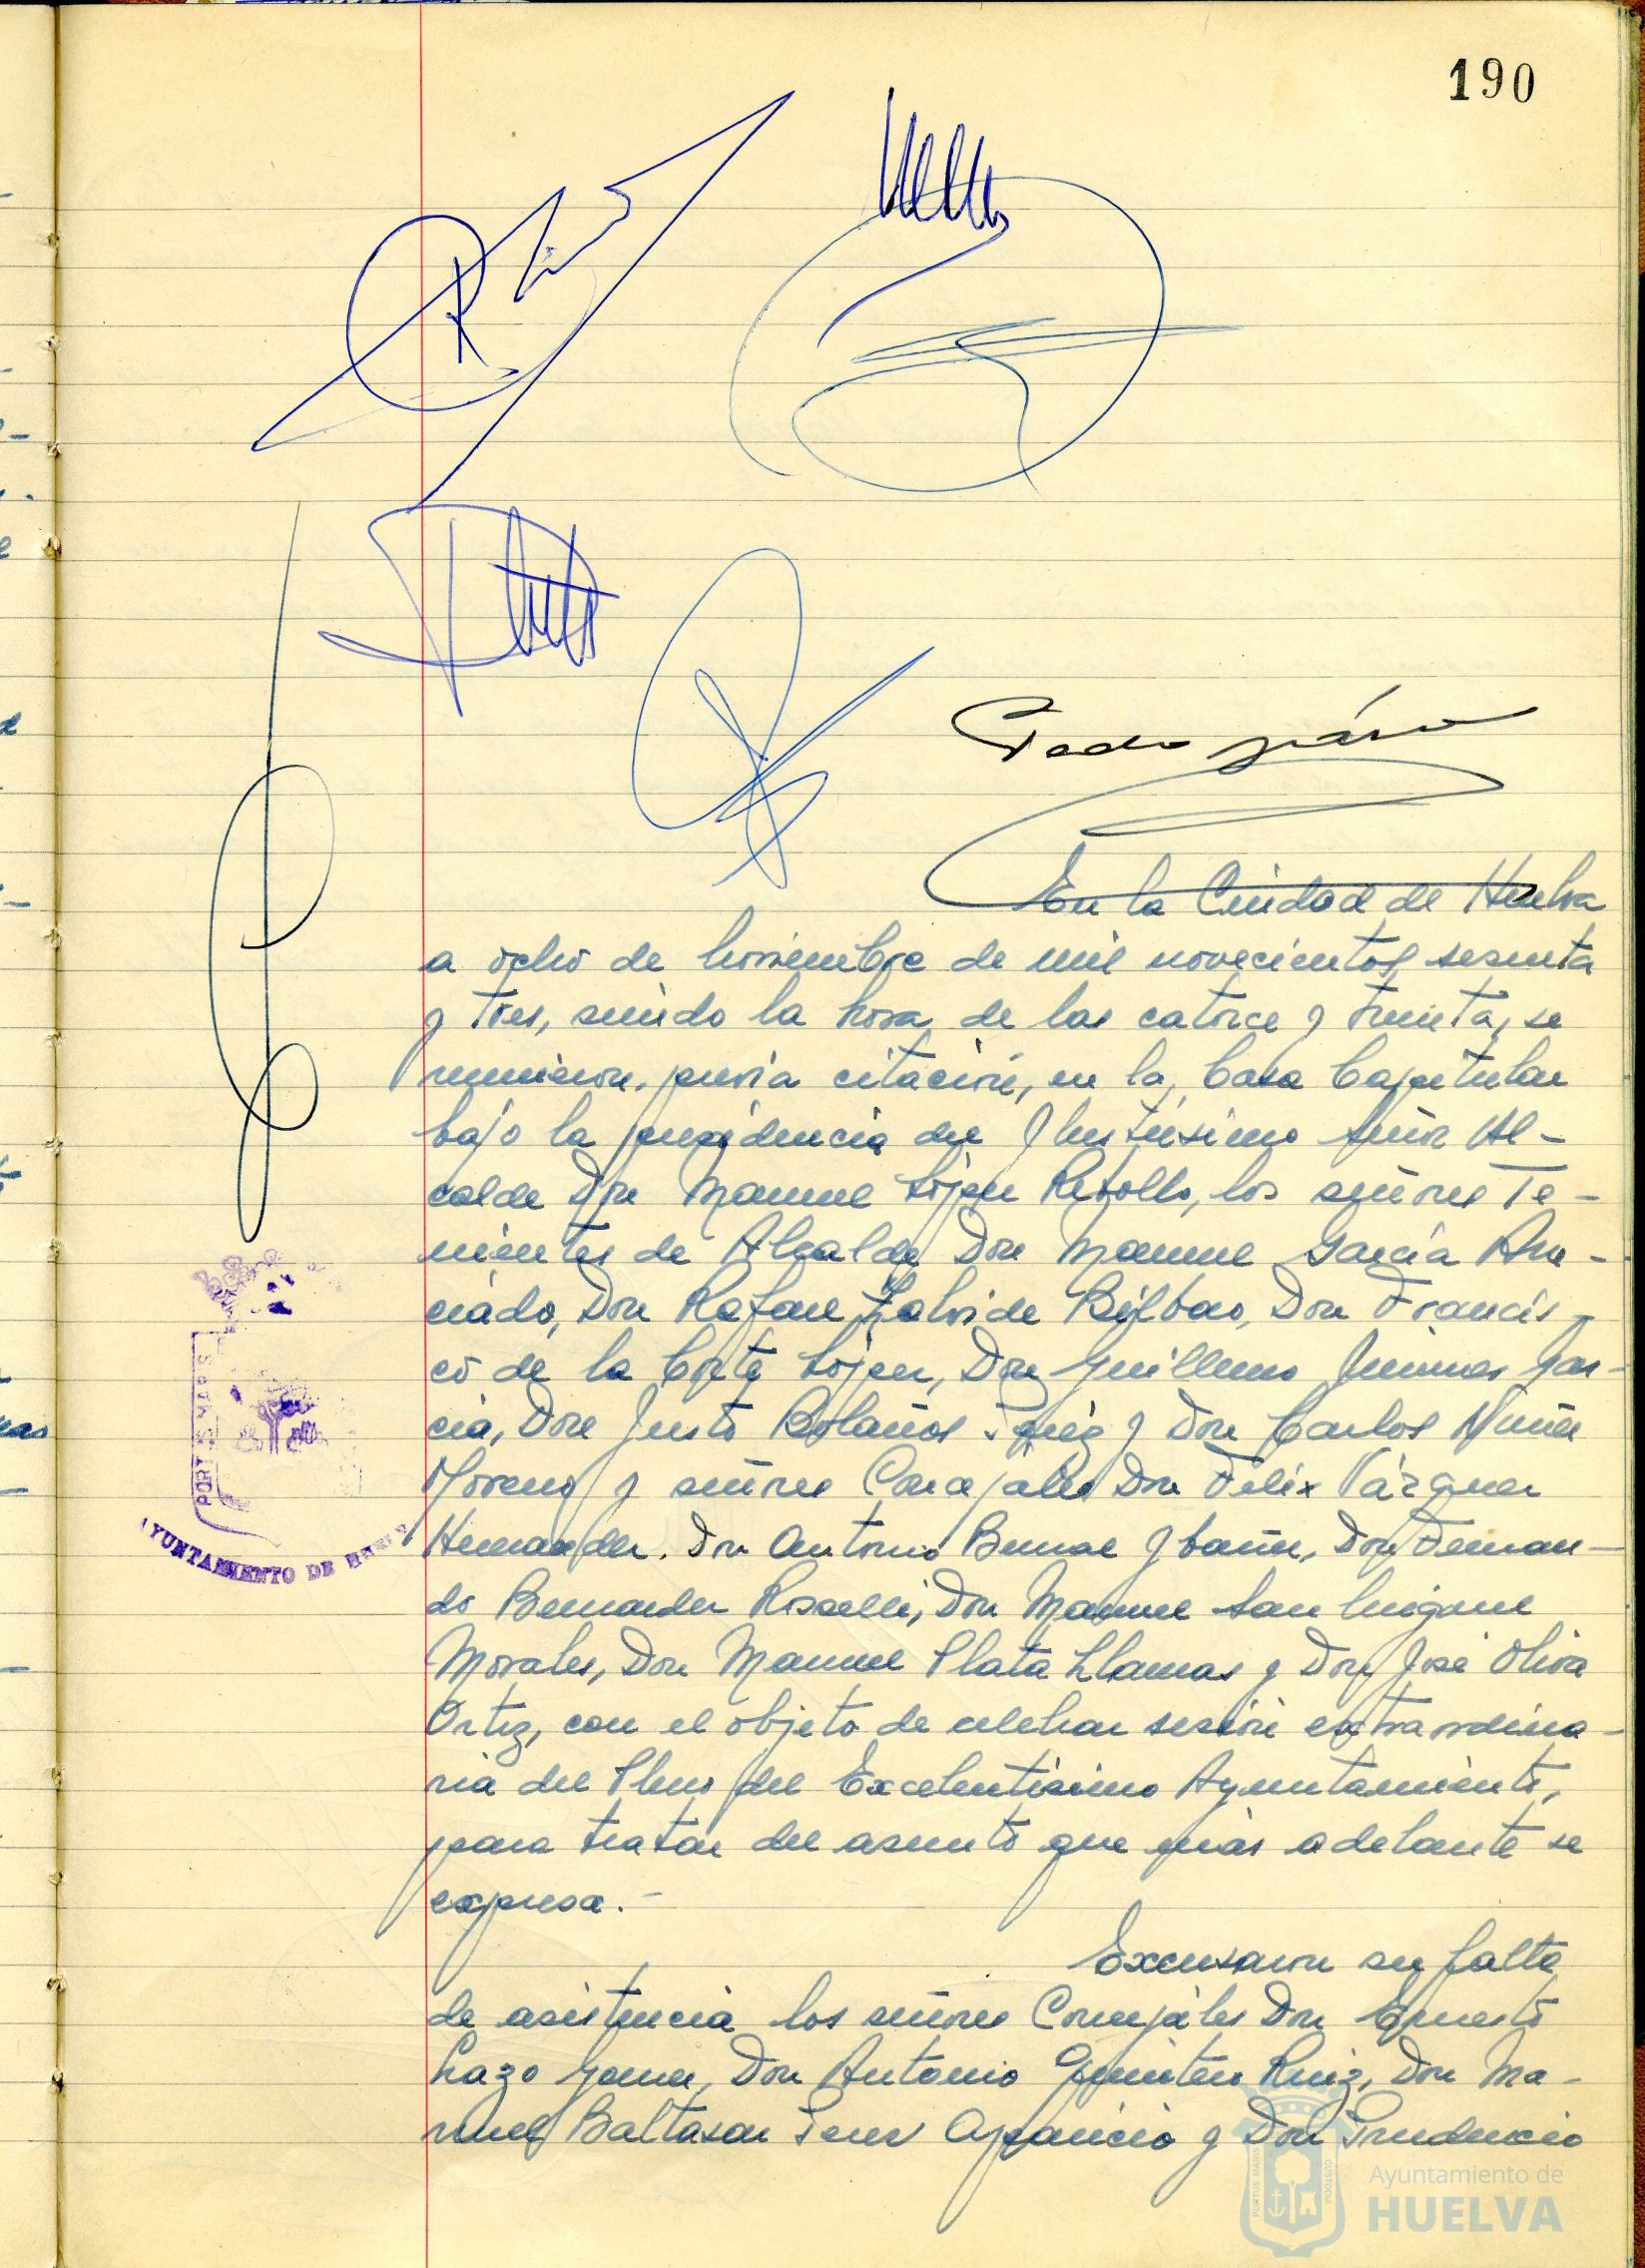 190
Pedro García
En la Ciudad de Huelva
a ocho de noviembre de mil novecientos sesenta
y tres, siendo la hora de las catorce y treinta, se
reunieron, previa citación, en la Casa Capitular
bajo la presidencia del Ilustrísimo señor Al-
calde Don Manuel López Rebollo, los señores Te-
nientes de Alcalde Don Manuel García An-
ciado, Don Rafael Zalvide Bilbao, Don Francis-
co de la Corte López, Don Guillermo Jiménez Gar-
cía, Don Justo Bolaños y Don Carlos Núñez
Moreno y señores Concejales Don Félix Vázquez
Hernández, Don Antonio Bernal Ybañez, Don Fernan-
do Bermudez Roselli, Don Manuel San Miguel
Morales, Don Manuel Plata Llamas y Don José Oliva
Ortiz, con el objeto de celebrar sesión extraordina-
ria del Pleno del Excelentísimo Ayuntamiento,
para tratar del asunto que más adelante se
expresa.-
Excusaron su falta
de asistencia los señores Concejales Don Ernesto
Lazo Gomez, Don Antonio Quintero Ruiz, Don Ma-
nuel Baltasar Perez Aparicio y Don Prudencio
PORTUS MARIS
AYUNTAMIENTO DE HUELVA
Ayuntamiento de
HUELVA